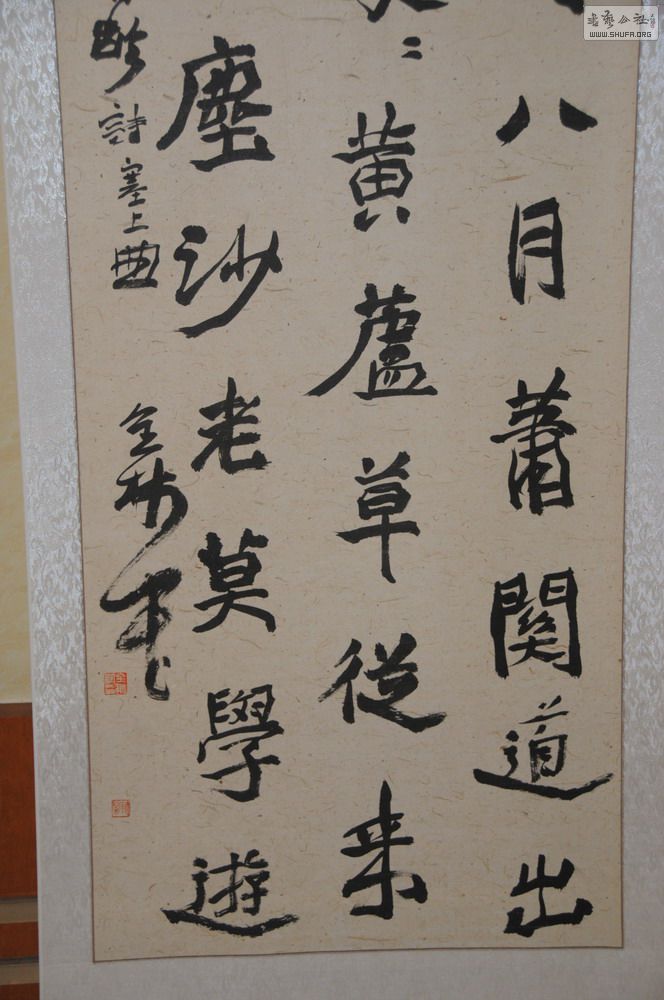 八月蕭關道出
〻黃蘆草從来
塵沙老莫學遊
齡詩塞上曲
書藝公社
WWW.SHUFA.ORG